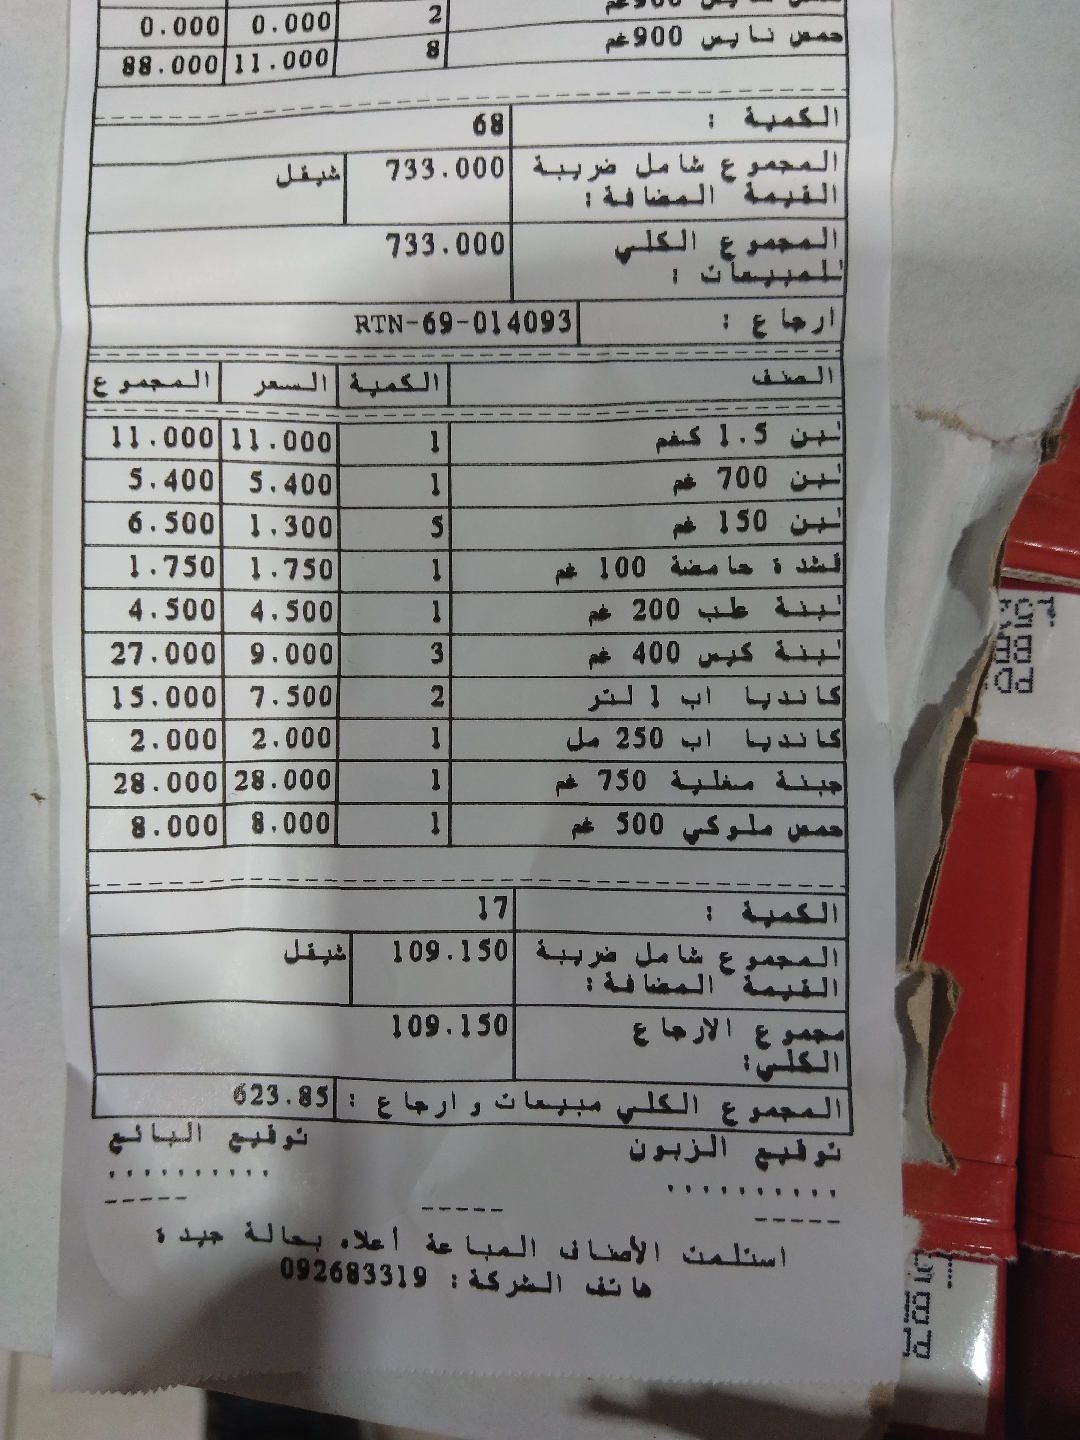 900غم 2 0.000 0.000
حمص نايس 900غم 8 11.000 88.000
الكمية : 68
المجموع شامل ضريبة 733.000 شيقل
القيمة المضافة:
المجموع الكلي 733.000
للمبيعات :
ارجاع : RTN-69-014093
الصنف الكمية السعر المجموع
لبن 1.5 كغم 1 11.000 11.000
لبن 700 غم 1 5.400 5.400
لبن 150 غم 5 1.300 6.500
قشدة حامضة 100 غم 1 1.750 1.750
لبنة علب 200 غم 1 4.500 4.500
لبنة كيس 400 غم 3 9.000 27.000
كانديا اب 1 لتر 2 7.500 15.000
كانديا اب 250 مل 1 2.000 2.000
جبنة مغلية 750 غم 1 28.000 28.000
حمص ملوكي 500 غم 1 8.000 8.000
الكمية : 17
المجموع شامل ضريبة 109.150 شيقل
القيمة المضافة:
مجموع الارجاع 109.150
الكلي:
المجموع الكلي مبيعات وارجاع : 623.85
توقيع الزبون توقيع البائع
.......... ..........
----- ----- -----
استلمت الأصناف المباعة أعلاه بحالة جيدة
هاتف الشركة: 092683319